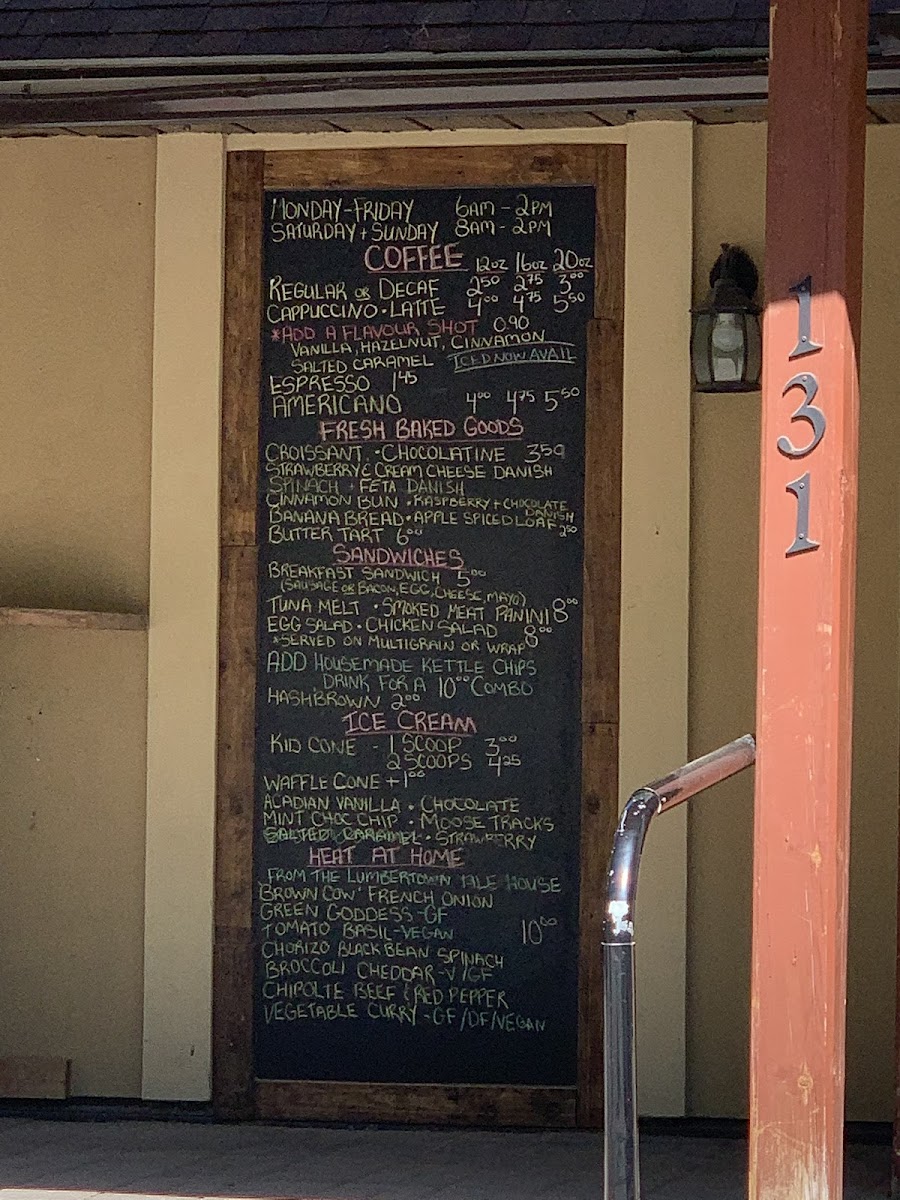 MONDAY-FRIDAY 6AM - 2PM
SATURDAY + SUNDAY 8AM - 2PM
COFFEE 12oz 16oz 20oz
REGULAR OR DECAF 250 275 300
CAPPUCCINO • LATTE 400 475 550
*ADD A FLAVOUR SHOT 0.90
VANILLA, HAZELNUT, CINNAMON
SALTED CARAMEL ICED NOW AVAIL
ESPRESSO 145
AMERICANO 400 475 550
FRESH BAKED GOODS
CROISSANT • CHOCOLATINE 350
STRAWBERRY & CREAM CHEESE DANISH
SPINACH + FETA DANISH
CINNAMON BUN • RASPBERRY + CHOCOLATE DANISH
BANANA BREAD • APPLE SPICED LOAF 250
BUTTER TART 600
SANDWICHES
BREAKFAST SANDWICH 500
(SAUSAGE OR BACON, EGG, CHEESE, MAYO)
TUNA MELT • SMOKED MEAT PANINI 800
EGG SALAD • CHICKEN SALAD 800
*SERVED ON MULTIGRAIN OR WRAP
ADD HOUSEMADE KETTLE CHIPS
DRINK FOR A 1000 COMBO
HASHBROWN 200
ICE CREAM
KID CONE - 1 SCOOP 300
2 SCOOPS 425
WAFFLE CONE + 100
ACADIAN VANILLA • CHOCOLATE
MINT CHOC CHIP • MOOSE TRACKS
SALTED CARAMEL • STRAWBERRY
HEAT AT HOME
FROM THE LUMBERTOWN ALE HOUSE
'BROWN COW' FRENCH ONION
GREEN GODDESS - GF
TOMATO BASIL - VEGAN 1000
CHORIZO BLACK BEAN SPINACH
BROCCOLI CHEDDAR - V/GF
CHIPOLTE BEEF & RED PEPPER
VEGETABLE CURRY - GF/DF/VEGAN
131